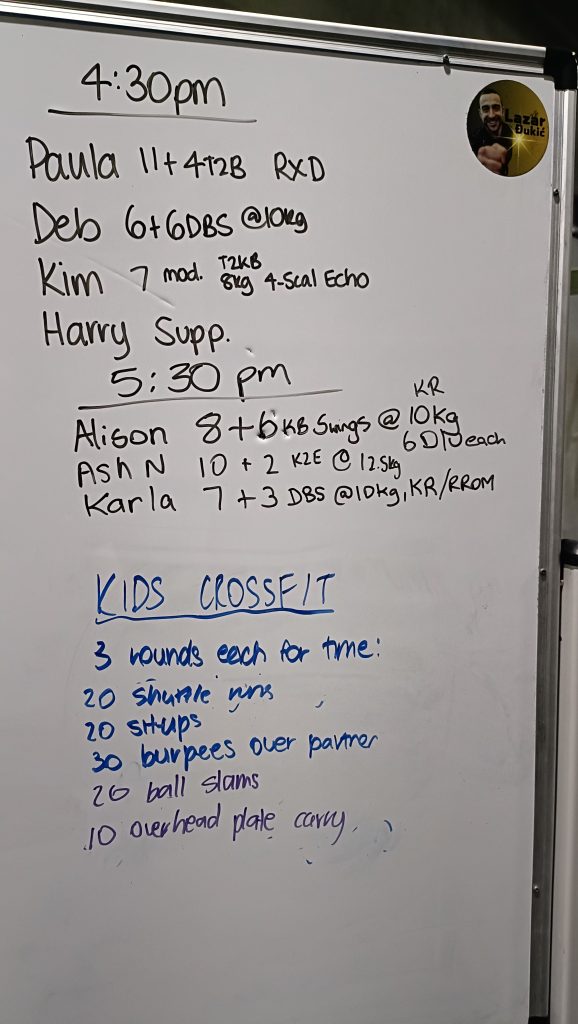 4:30pm
Lazar
Đukić
Paula 11+4T2B RXD
Deb 6+6DBS @10kg
Kim 7 mod. T2KB 8kg 4-Scal Echo
Harry Supp.
5:30 pm
KR
Alison 8+6 KB Swings @ 10kg
6 each
Ash N 10 + 2 K2E @ 12.5kg
Karla 7+3 DBS @10kg, KR/RROM
KIDS CROSSFIT
3 rounds each for time:
20 shuttle runs
20 situps
30 burpees over partner
20 ball slams
10 overhead plate carry